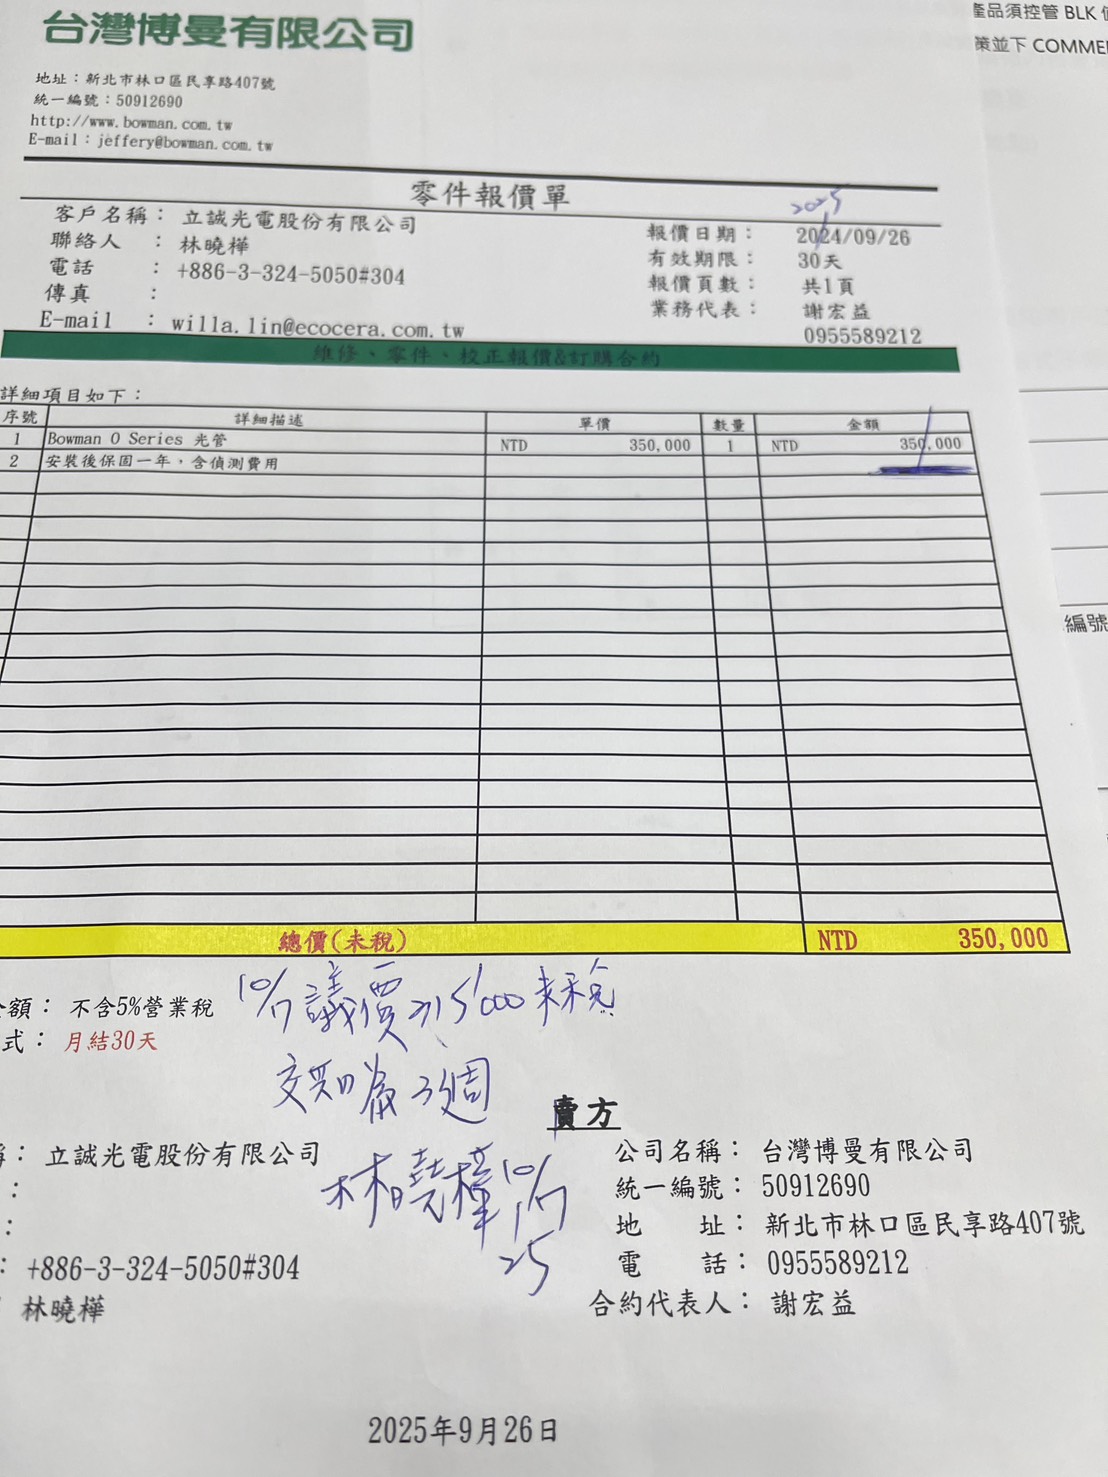 台灣博曼有限公司
地址：新北市林口區民享路407號
統一編號：50912690
http://www.bowman.com.tw
E-mail：jeffery@bowman.com.tw
產品須控管 BLK
策並下 COMME
零件報價單
客戶名稱： 立誠光電股份有限公司
聯絡人 ： 林曉樺
電話 ： +886-3-324-5050#304
傳真 ：
E-mail ： willa.lin@ecocera.com.tw
2025
報價日期： 2024/09/26
有效期限： 30天
報價頁數： 共1頁
業務代表： 謝宏益
0955589212
維修、零件、校正報價&訂購合約
詳細項目如下：
序號 詳細描述 單價 數量 金額
1 Bowman O Series 光管 NTD 350,000 1 NTD 350,000
2 安裝後保固一年，含偵測費用
編號
總價(未稅) NTD 350,000
金額： 不含5%營業稅
式： 月結30天
10/7 議價 315'000 未稅
交期 3週
林曉樺 10/7
25
賣方
公司名稱： 台灣博曼有限公司
統一編號： 50912690
地 址： 新北市林口區民享路407號
電 話： 0955589212
合約代表人： 謝宏益
： 立誠光電股份有限公司
：
：
： +886-3-324-5050#304
林曉樺
2025年9月26日